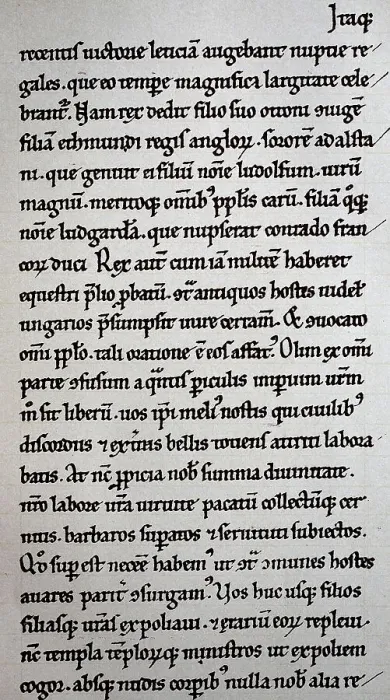 Itaq;
recentis uictorie leticiā augebant nuptie re
gales. que eo tempe magnifica largitate cele
brant̃. Nam rex dedit filio suo ottoni ꝯiugē
filiā ethmundi regis angloꝝ. sororē adalsta
ni. que genuit ei filiū noīe ludolfum. uirū
magnū. meritoq; om̄ib; ppl̄is carū. filiā q̊q;
noīe liudgardā. que nupserat conrado fran
coꝝ duci. Rex aut̄ cum iā militiē haberet
equestri p̄lio ꝓbatū. ꝯt̃ antiquos hostes uidel̃
ungarios p̄sumpsit inire certam̄. & ꝯuocato
om̄i ppl̄o. tali oratione ē eos affat;. Olim ex om̄i
parte ꝯfusum a q̃ntis ꝑiculis imꝑium ur̄m
m̊ sit liberū. uos ip̄i meli; nostis qui ciuilib;
discordiis ⁊ ext̃nis bellis totiens attriti labora
batis. At nc̄ ꝓpicia nob̄ summa diuinitate.
nr̄o labore ur̄a uirtute pacatū collectūq; cer
nitis. barbaros sup̄atos ⁊ seruituti subiectos.
Qđ supest necēē habem; ut ꝯt̃ ꝯmunes hostes
auares parit̃ ꝯsurgam;. Vos huc usq; filios
filiasq; ur̄as expoliaui. ⁊ erariū eoꝝ repleui.
nc̄ templa tēploꝝq; ministros ut expoliem
cogor. absq; nudis corpib; nulla nob̄ alia re